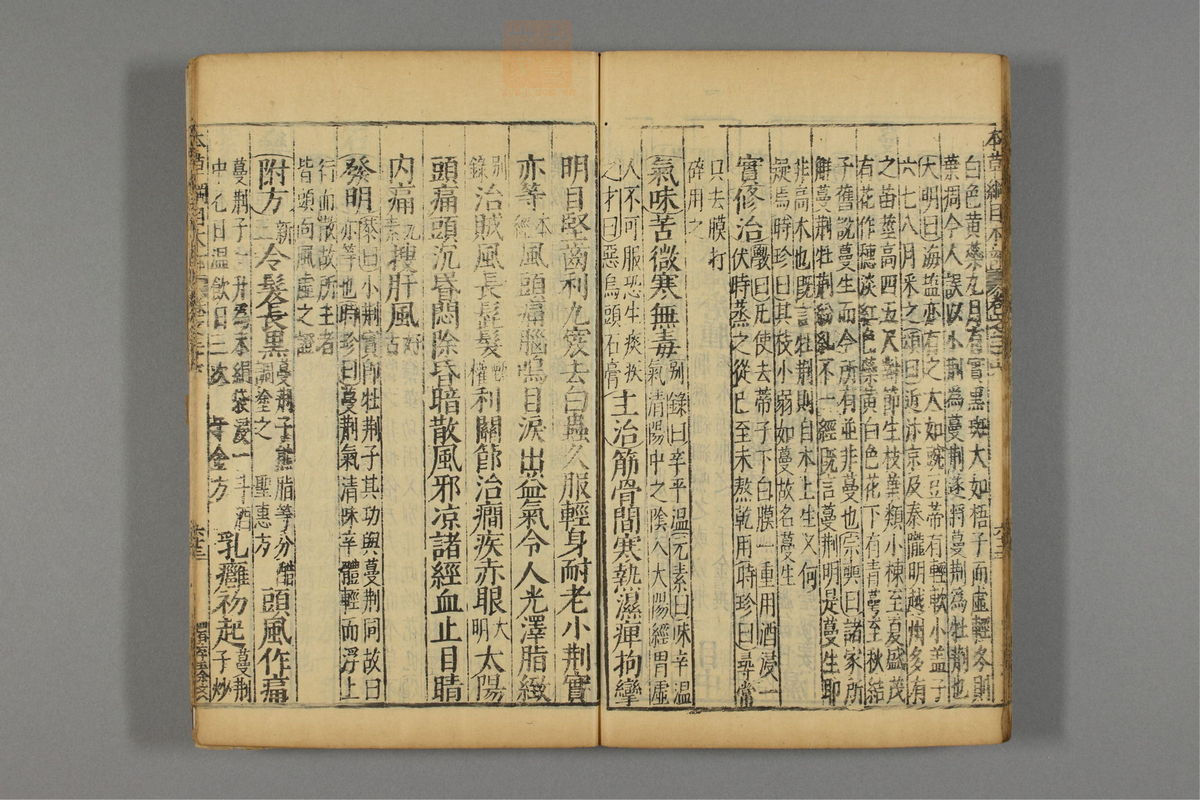 白色黃蘂九月有實黑斑大如梧子而虛輕冬則
葉凋今人誤以小荆為蔓荆遂將蔓荆為牡荆也
大明曰海鹽亦有之大如豌豆蒂有輕軟小盖子
六七八月采之頌曰近汴京及秦隴明越州多有
之苗莖高四五尺對節生枝葉類小棟至夏盛茂
有花作穗淡紅色蘂黃白色花下有青萼至秋結
子舊說蔓生而今所有並非蔓也宗奭曰諸家所
解蔓荆牡荆紛亂不一經既言蔓荆明是蔓生即
非高木也既言牡荆則自木上生又何
疑焉時珍曰其枝小弱如蔓故名蔓生
實修治
斆曰凡使去蒂子下白膜一重用酒浸一
伏時蒸之從巳至未熬乾用時珍曰尋常
只去膜打
碎用之
氣味苦微寒無毒
別錄曰辛平溫元素曰味辛溫
氣清陽中之陰入太陽經胃虛
人不可服恐生痰疾
之才曰惡烏頭石膏
主治筋骨間寒熱濕痺拘攣
明目堅齒利九竅去白蟲久服輕身耐老小荆實
亦等
本
經
風頭痛腦鳴目淚出益氣令人光澤脂緻
別
錄
治賊風長髭髮
甄
權
利關節治癎疾赤眼
大
明
太陽
頭痛頭沉昏悶除昏暗散風邪凉諸經血止目睛
内痛
元
素
搜肝風
好
古
發明
恭曰小荆實即牡荆子其功與蔓荆同故曰
亦等也時珍曰蔓荆氣清味辛體輕而浮上
行而散故所主者
皆頭面風虛之證
附方
新
三
令髮長黑
蔓荆子熊脂等分醋
調塗之 聖惠方
頭風作痛
蔓荆子一升為末絹袋浸一斗酒
中七日溫飲日三次 千金方
乳癰初起
蔓荆
子炒
本草綱目木部
卷之三十六
六十三
本草綱目木部
六十三